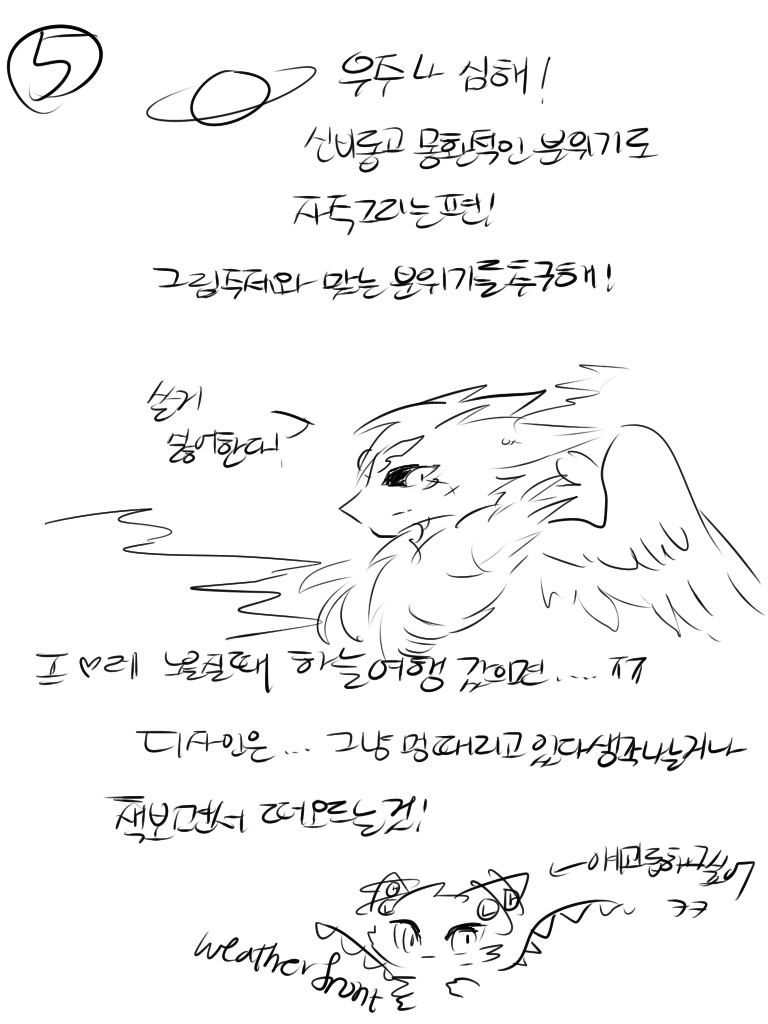 5
우주나 심해!
신비롭고 몽환적인 분위기로
자주그리는편!
그림주제와 맞는 분위기를추구해!
쓸거
많어한대!
프♡레 노을질때 하늘여행 같의견.... ㅠㅠ
디자인은... 그냥 멍때리고 있다생각나는거나
책보면서 떠오르는것!
←얘괴롭히고싶어
ㅋㅋ
weather front